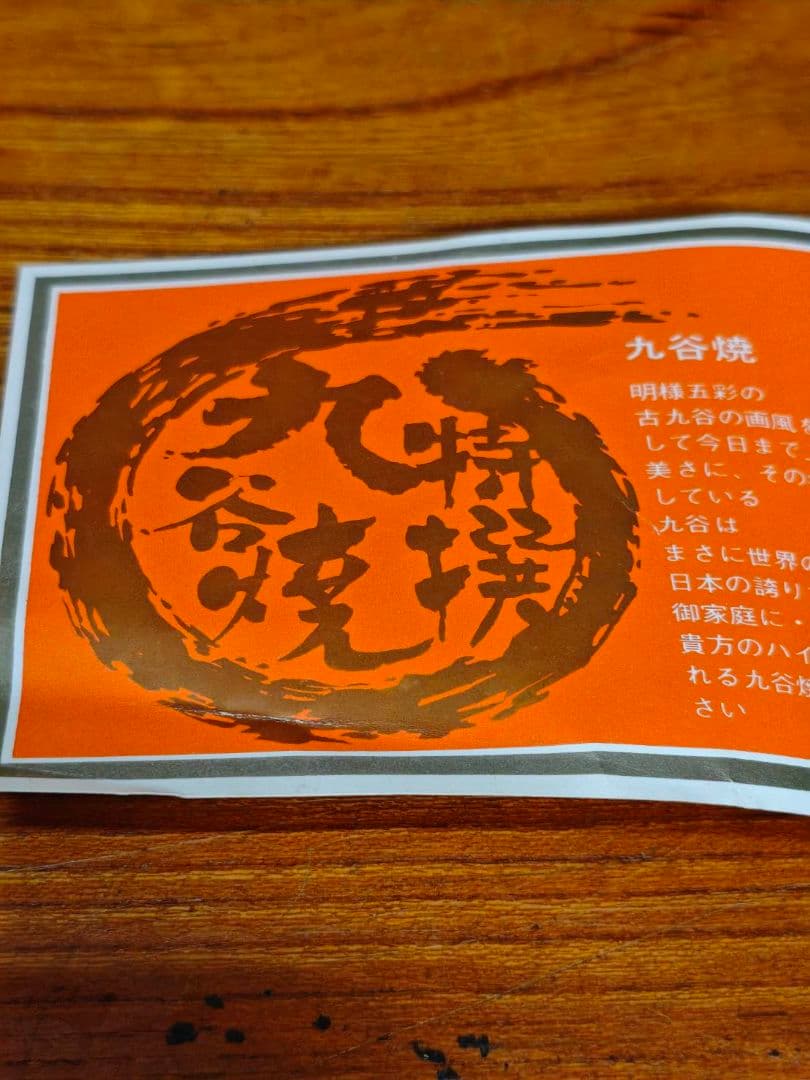 特撰
九谷焼
九谷焼
明様五彩の
古九谷の画風を
して今日まで
美さに、その
している
九谷は
まさに世界の
日本の誇り
御家庭に・
貴方のハイ
れる九谷焼
さい